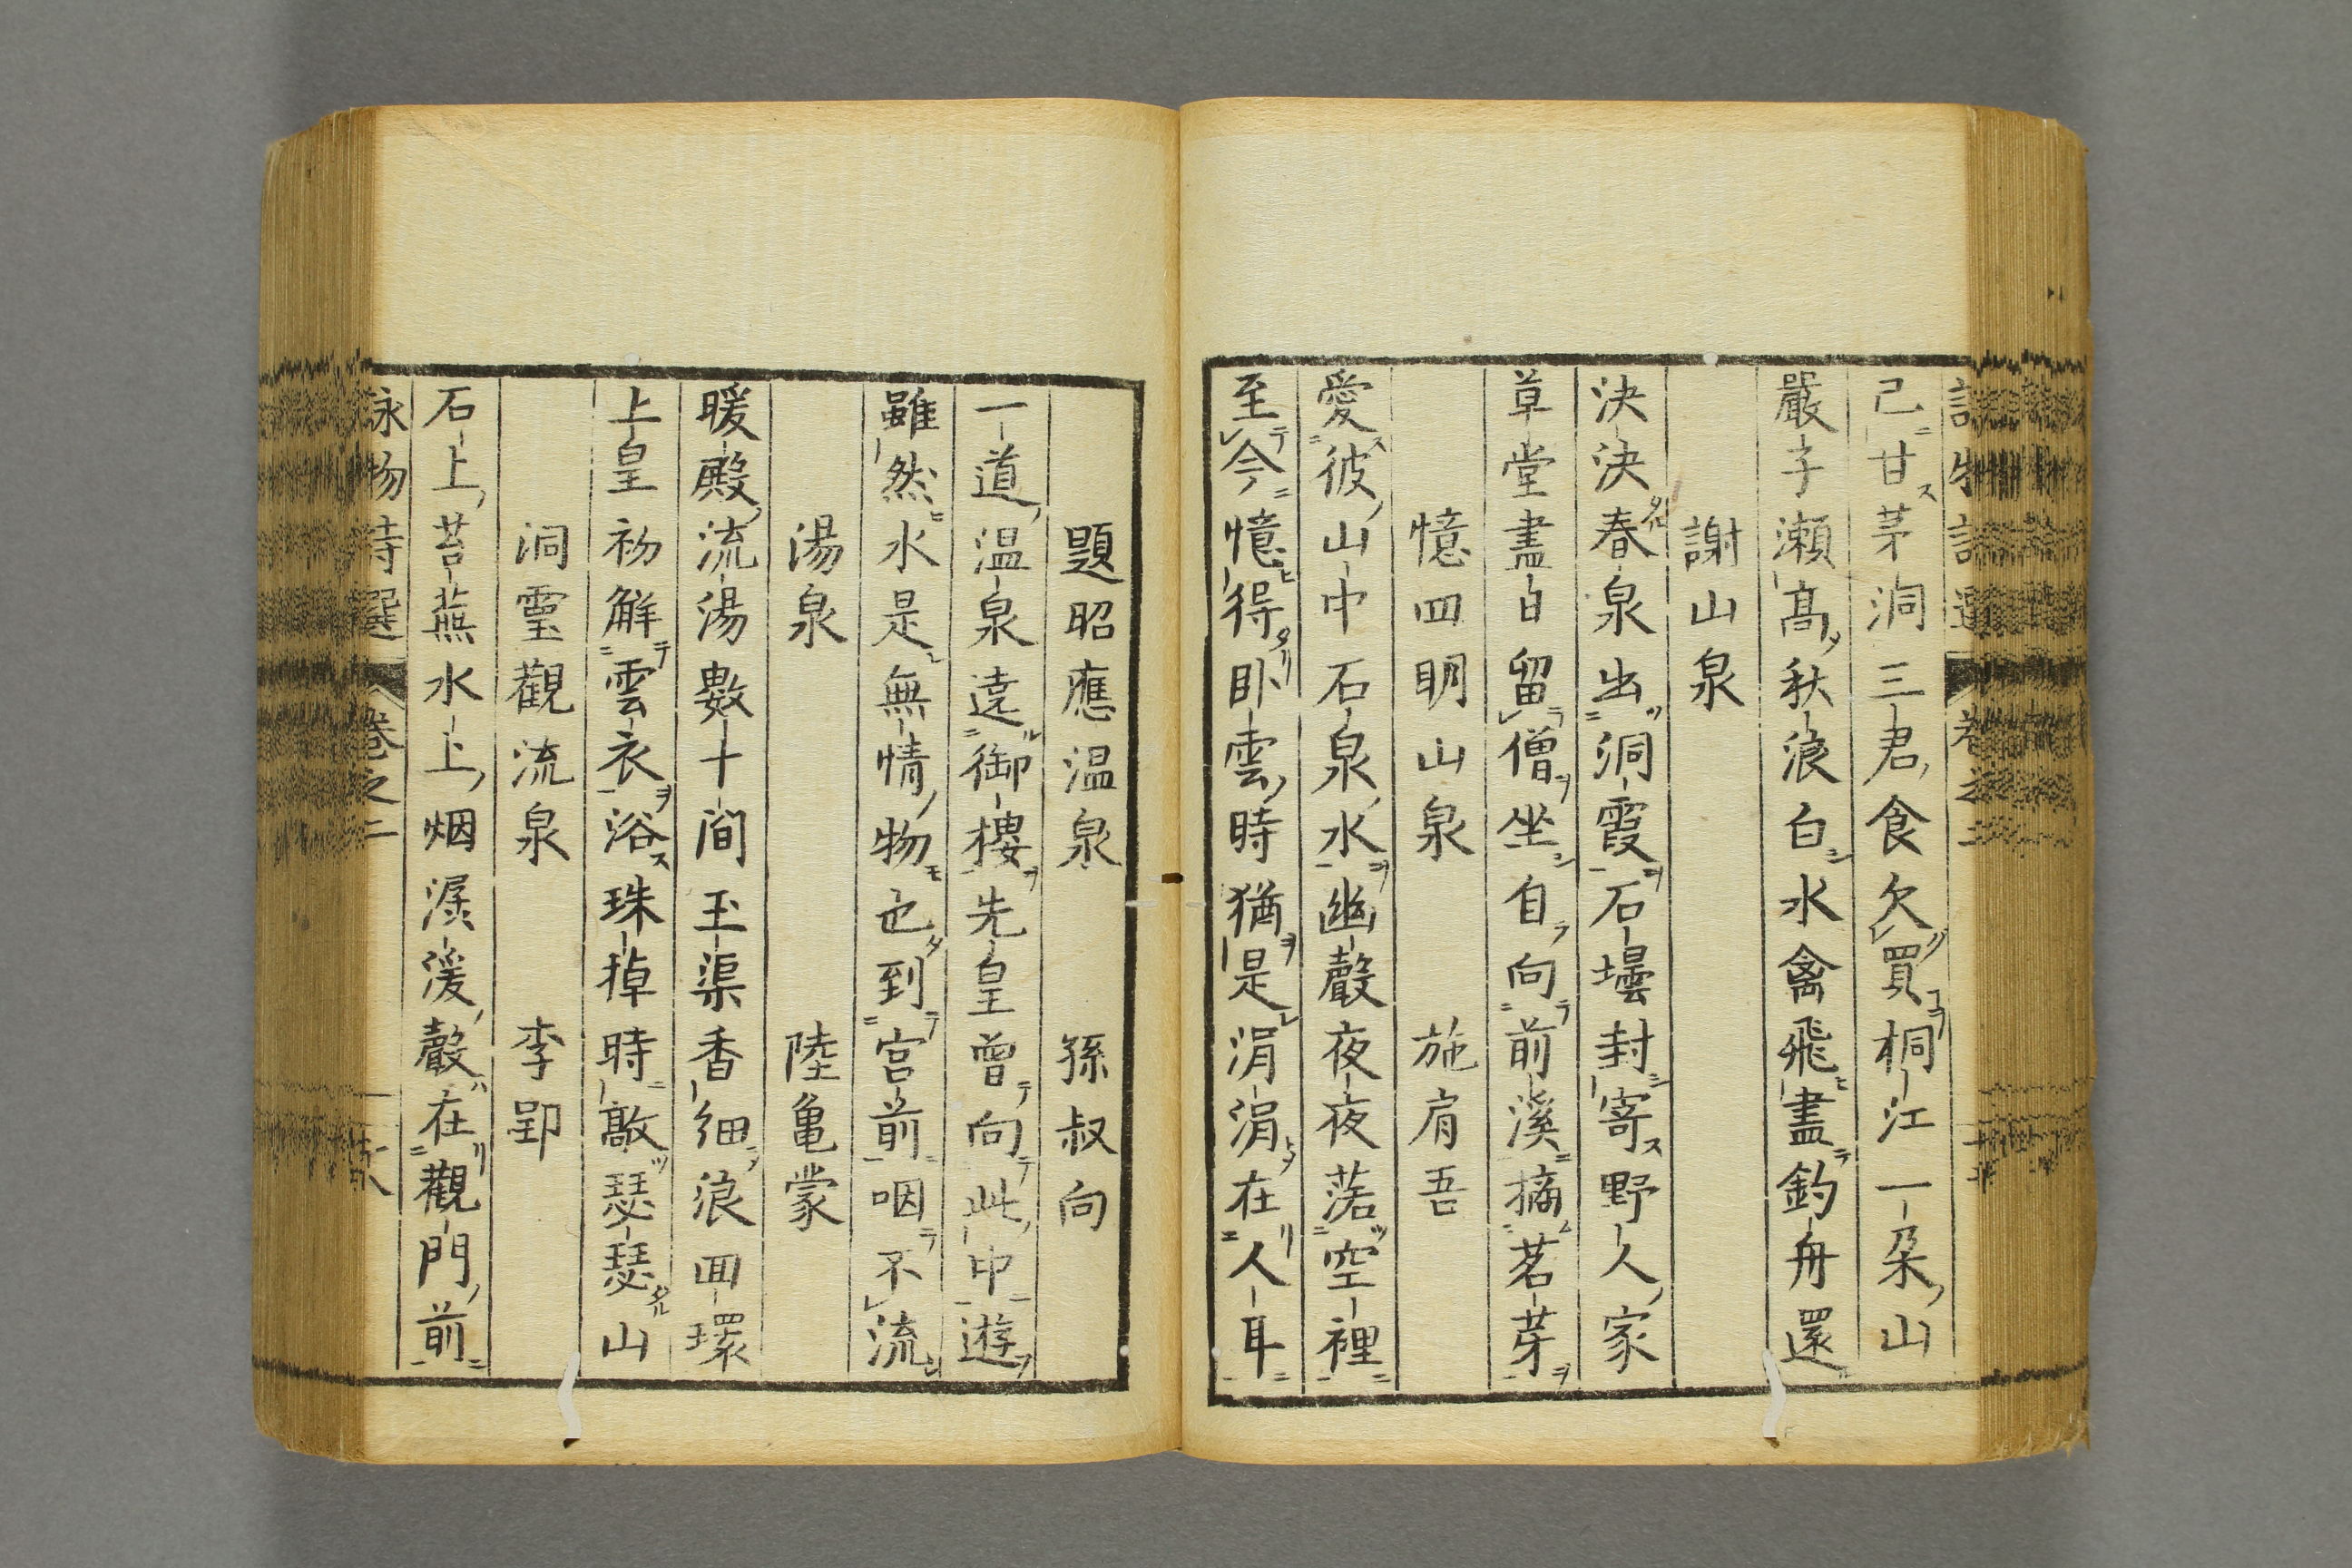 己甘茅洞三君食欠買桐江一朶山
嚴子瀬高秋浪白水禽飛盡釣舟還
謝山泉
決決春泉出洞霞石壜封寄野人家
草堂盡日留僧坐自向前溪摘茗芽
憶四明山泉 施肩吾
愛彼山中石泉水幽聲夜夜落空裡
至今憶得臥雲時猶是涓涓在人耳
題昭應温泉 孫叔向
一道温泉遶御樓先皇曾向此中遊
雖然水是無情物也到宮前咽不流
湯泉 陸亀蒙
暖殿流湯數十間玉渠香細浪回環
上皇初解雲衣浴珠棹時敲瑟瑟山
洞霊觀流泉 李郢
石上苔蕪水上烟潺湲聲在觀門前
詠物詩選 卷之二